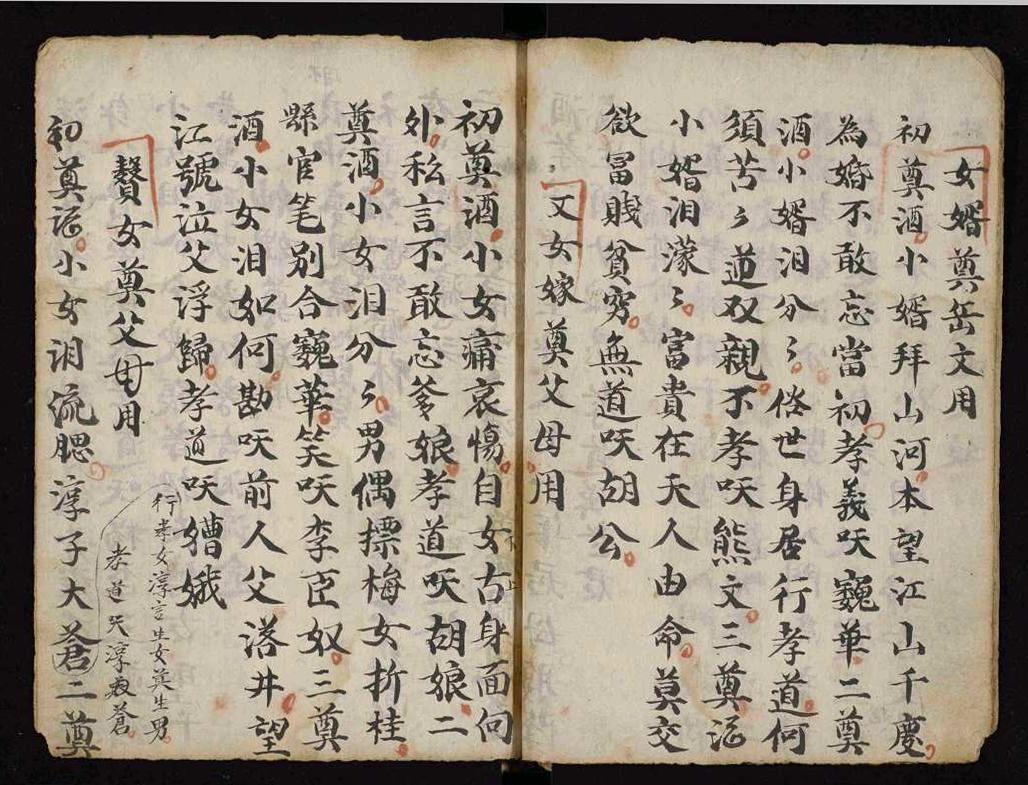 女婿奠岳文用
初奠酒小婿拜山河本望江山千慶
為婚不敢忘當初孝義吷巍華二奠
酒小婿泪分〻俗世身居行孝道何
須苦〻逥双親不孝吷熊文三奠泛
小婿泪濛〻富貴在天人由命莫交
欲冨賎貧穷無道吷胡公
又女嫁奠父母用
初奠酒小女痛哀傷自女古身面向
外私言不敢忘爹娘孝道吷胡娘二
奠酒小女泪分〻男偶摽梅女折桂
縣官笔别合巍華笑吷李臣奴三奠
酒小女泪如何勘吷前人父落井望
江號泣父浮歸孝道吷䄚娥
行孝女淳言生女莫生男
孝道吷淳蒼
贅女奠父母用
初奠泛小女泪流腮淳子大蒼二奠